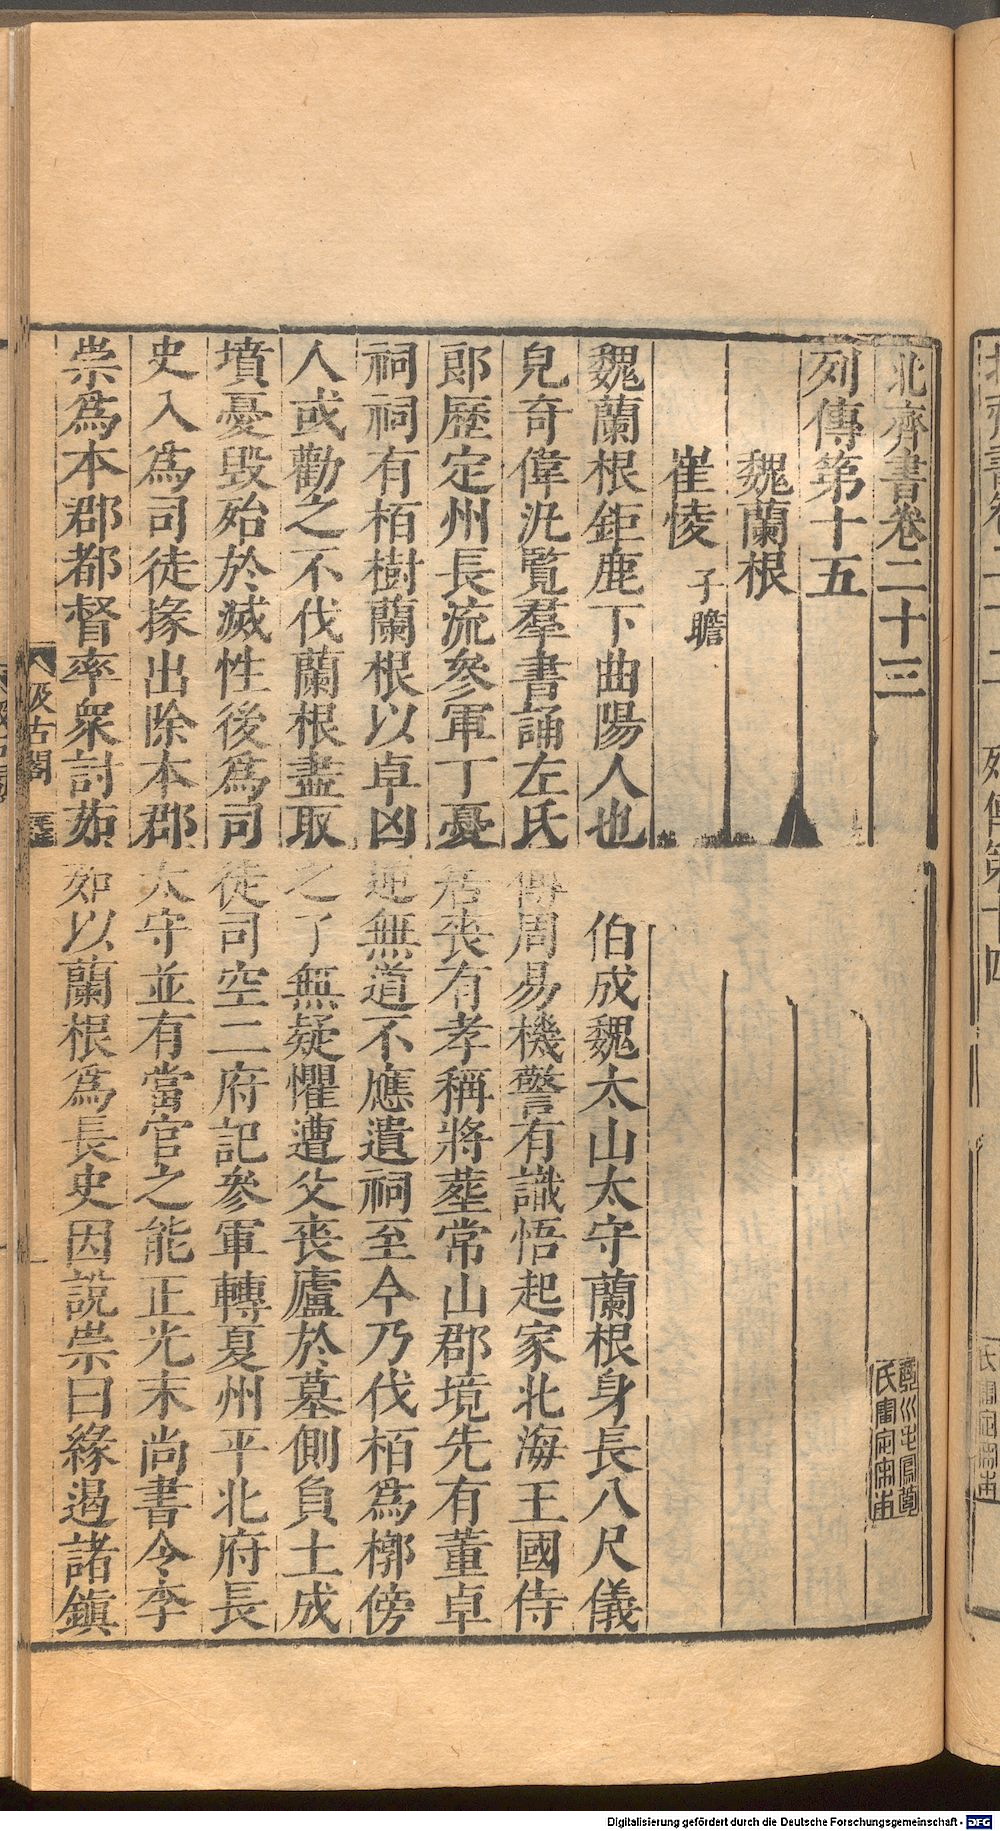 北齊書卷二十三
列傳第十五
魏蘭根
崔㥄 子瞻
魏蘭根鉅鹿下曲陽人也 伯成魏太山太守蘭根身長八尺儀
皃奇偉汎覽羣書誦左氏傳周易機警有識悟起家北海王國侍
郎歷定州長流參軍丁憂居喪有孝稱將塟常山郡境先有董卓
祠祠有栢樹蘭根以卓凶逆無道不應遺祠至今乃伐栢爲槨傍
人或勸之不伐蘭根盡取之了無疑懼遭父喪廬於墓側負土成
墳憂毀殆於滅性後爲司徒司空二府記參軍轉夏州平北府長
史入爲司徒掾出除本郡太守並有當官之能正光末尚書令李
崇爲本郡都督率衆討茹茹以蘭根爲長史因說崇曰緣邊諸鎮
汲古閣
列傳第十四
Digitalisierung gefördert durch die Deutsche Forschungsgemeinschaft - DFG